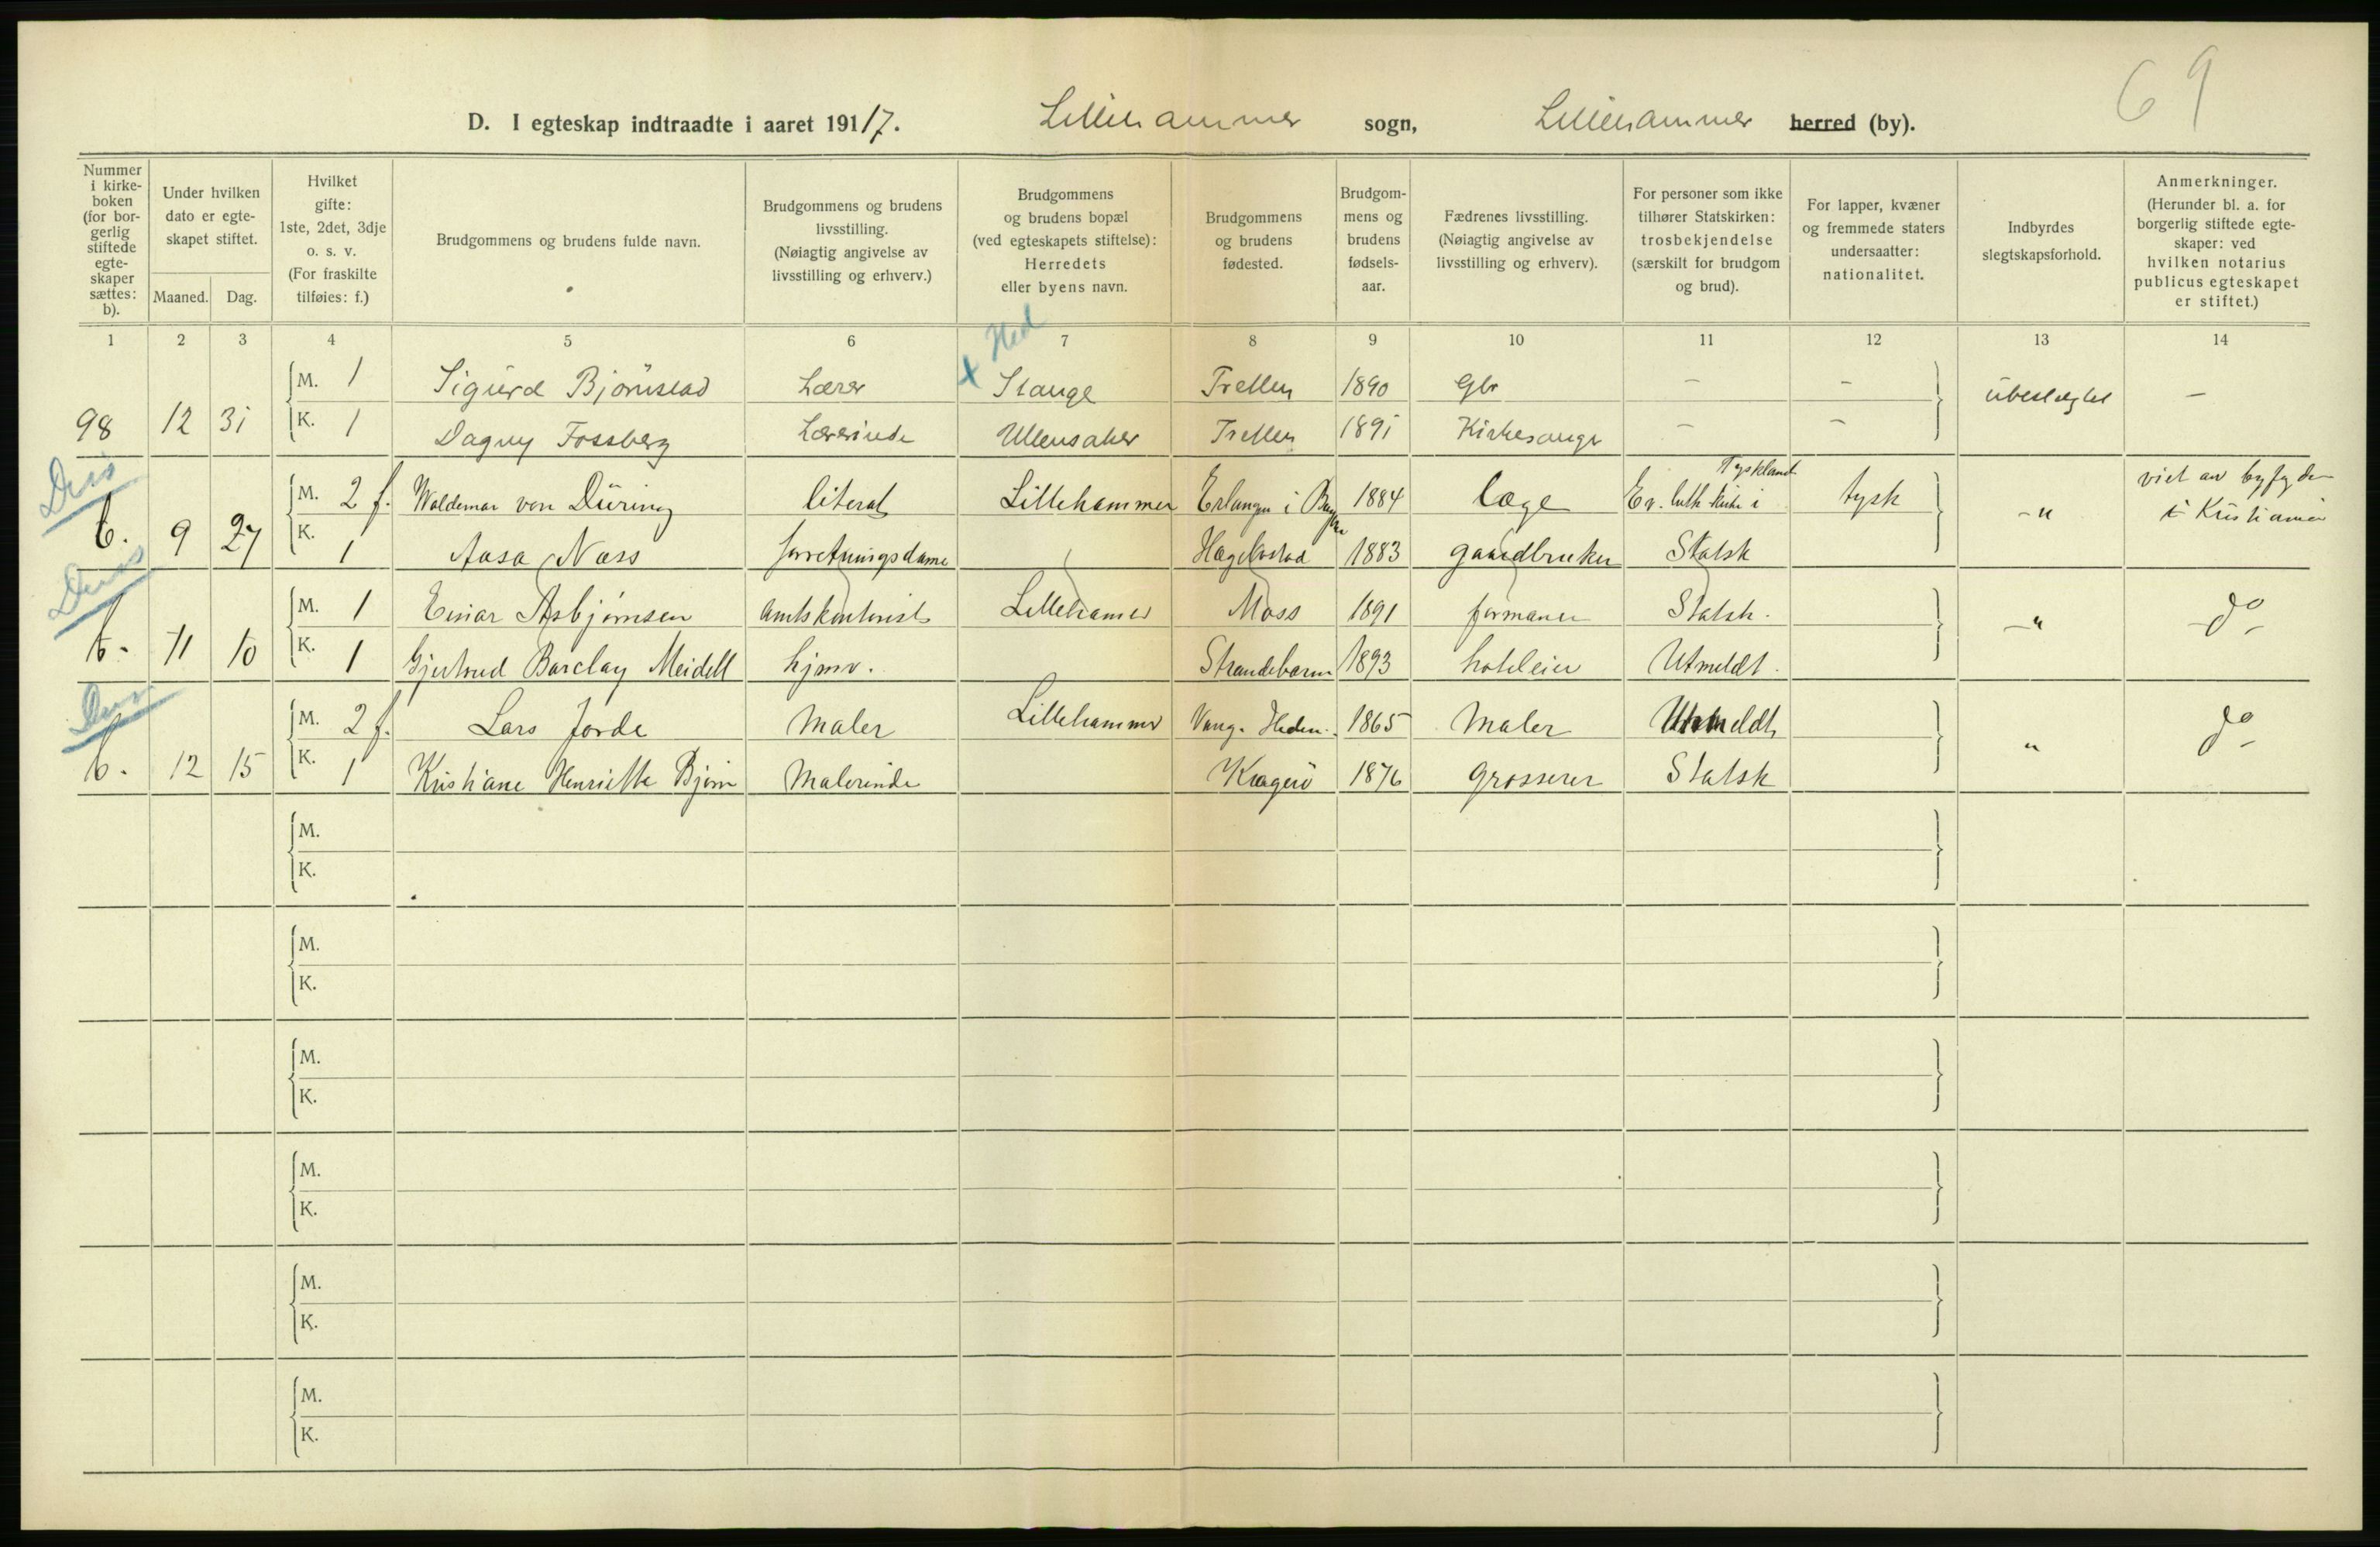 69
D. I egteskap indtraadte i aaret 19117. Lillehammer sogn, Lillehammer herred (by).
Nummer i kirke-boken (for bor-gerlig stiftede egte-skaper sættes: b).
Under hvilken dato er egte-skapet stiftet.
Maaned. Dag.
Hvilket gifte: 1ste, 2det, 3dje o. s. v. (For fraskilte tilføies: f.)
Brudgommens og brudens fulde navn.
Brudgommens og brudens livsstilling. (Nøiagtig angivelse av livsstilling og erhverv.)
Brudgommens og brudens bopæl (ved egteskapets stiftelse): Herredets eller byens navn.
Brudgommens og brudens fødested.
Brudgom-mens og brudens fødsels-aar.
Fædrenes livsstilling. (Nøiagtig angivelse av livsstilling og erhverv).
For personer som ikke tilhører Statskirken: trosbekjendelse (særskilt for brudgom og brud).
For lapper, kvæner og fremmede staters undersaatter: nationalitet.
Indbyrdes slegtskapsforhold.
Anmerkninger. (Herunder bl. a. for borgerlig stiftede egte-skaper: ved hvilken notarius publicus egteskapet er stiftet.)
1 2 3 4 5 6 7 8 9 10 11 12 13 14
Hed
M. 1 Sigurd Bjørnstad Lærer x Stange Tretten 1890 Gbr - - ubeslegtet -
98 12 31
K. 1 Dagny Fossberg Lærerinde Ullensaker Tretten 1891 Kirkesanger - -
M. 2 f. Waldemar von Düring literat Lillehammer Erlangen i Bayern 1884 læge Ev. luth kirke i Tyskland tysk -"- viet av byfgden i Kristiania
b. 9 27
K. 1 Aasa Næss forretningsdame Hægebostad 1883 gaardbruker Statsk
M. 1 Einar Asbjørnsen Amtskontorist Lillehamer Moss 1891 formann Statsk. -" do
b. 11 10
K. 1 Gjertrud Barclay Meidell hjmv. Strandebarm 1893 hoteleier Utmeldt.
M. 2 f. Lars Jorde Maler Lillehammer Vang. Hedm. 1865 Maler Utmeldt " do
b. 12 15
K. 1 Kristiane Henriette Bjørn Malerinde Kragerø 1876 Grosserer Statsk
M.
K.
M.
K.
M.
K.
M.
K.
M.
K.
M.
K.